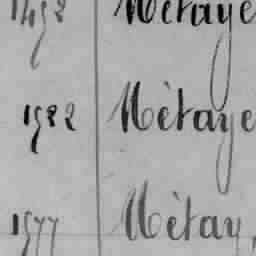 1452 Métaye
1522 Métaye
1577 Métay